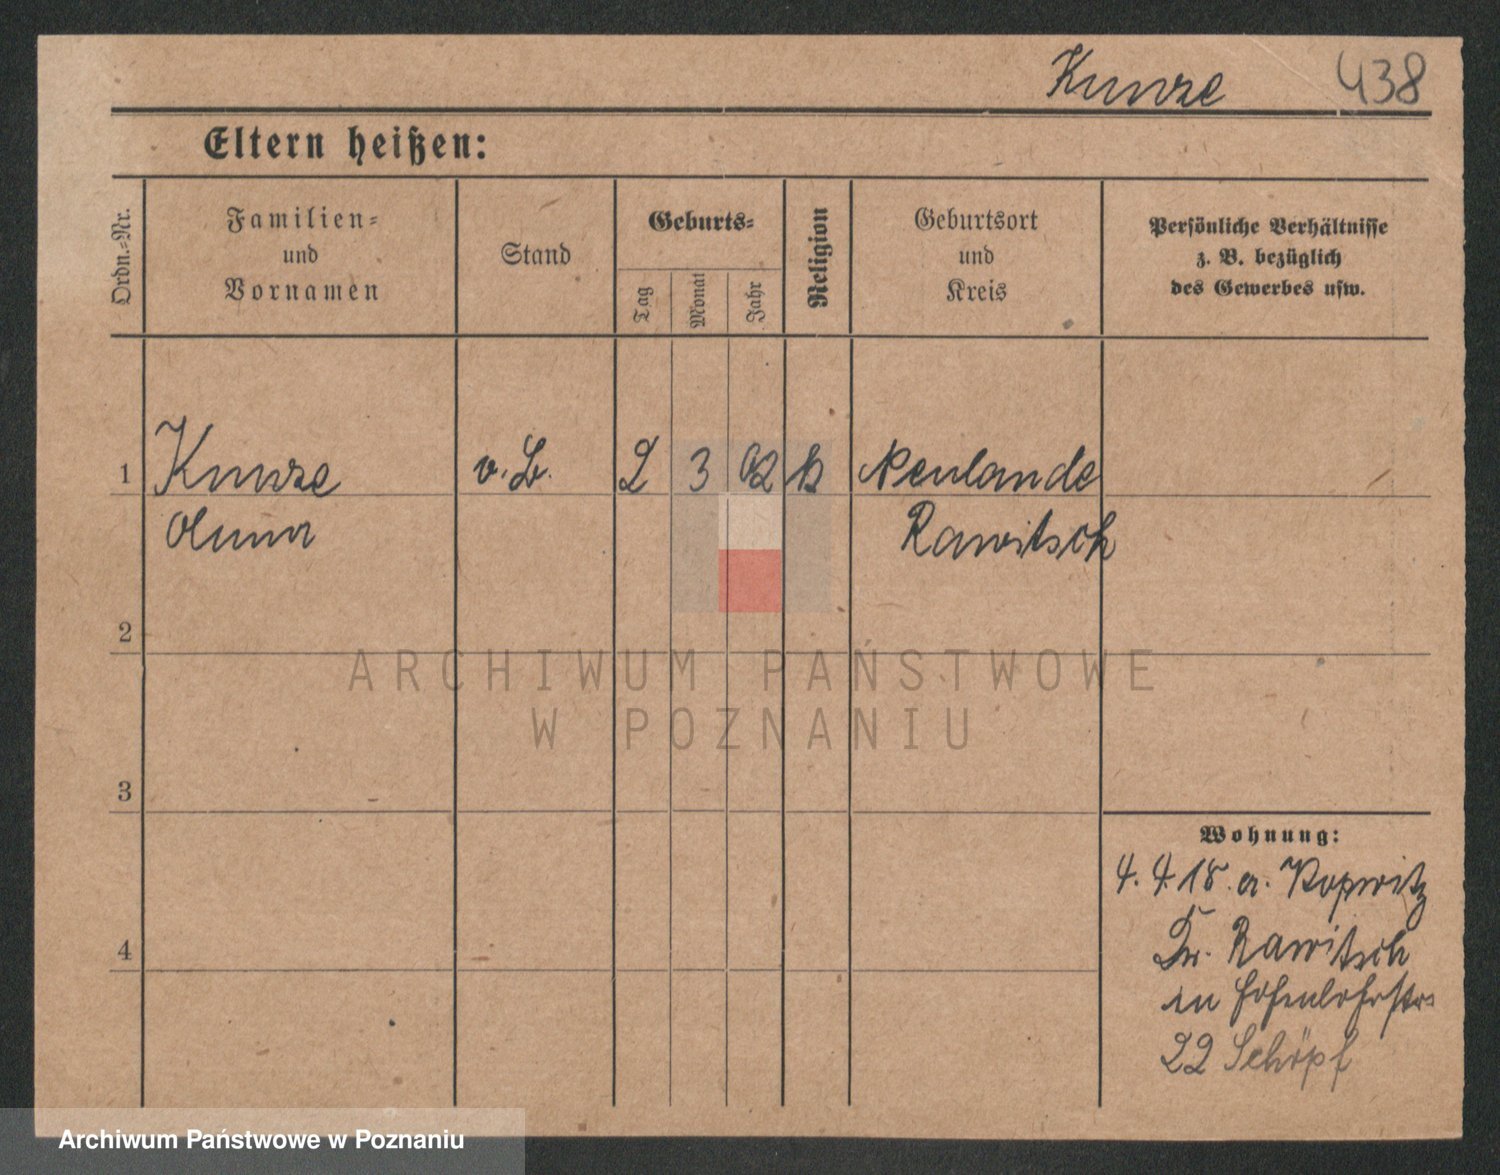 Kunze 438
Eltern heißen:
Ordn.-Nr.
Familien-
und
Vornamen
Stand
Geburts-
Tag
Monat
Jahr
Religion
Geburtsort
und
Kreis
Persönliche Verhältnisse
z. B. bezüglich
des Gewerbes usw.
1 Kunze v. L. 2 3 02 k Neulande
Anna Rawitsch
2
ARCHIWUM PAŃSTWOWE
W POZNANIU
3
Wohnung:
4. 4. 18. a. Kopwitz
4 Kr. Rawitsch
in Hohenlohestr.
22 Schöpf
Archiwum Państwowe w Poznaniu